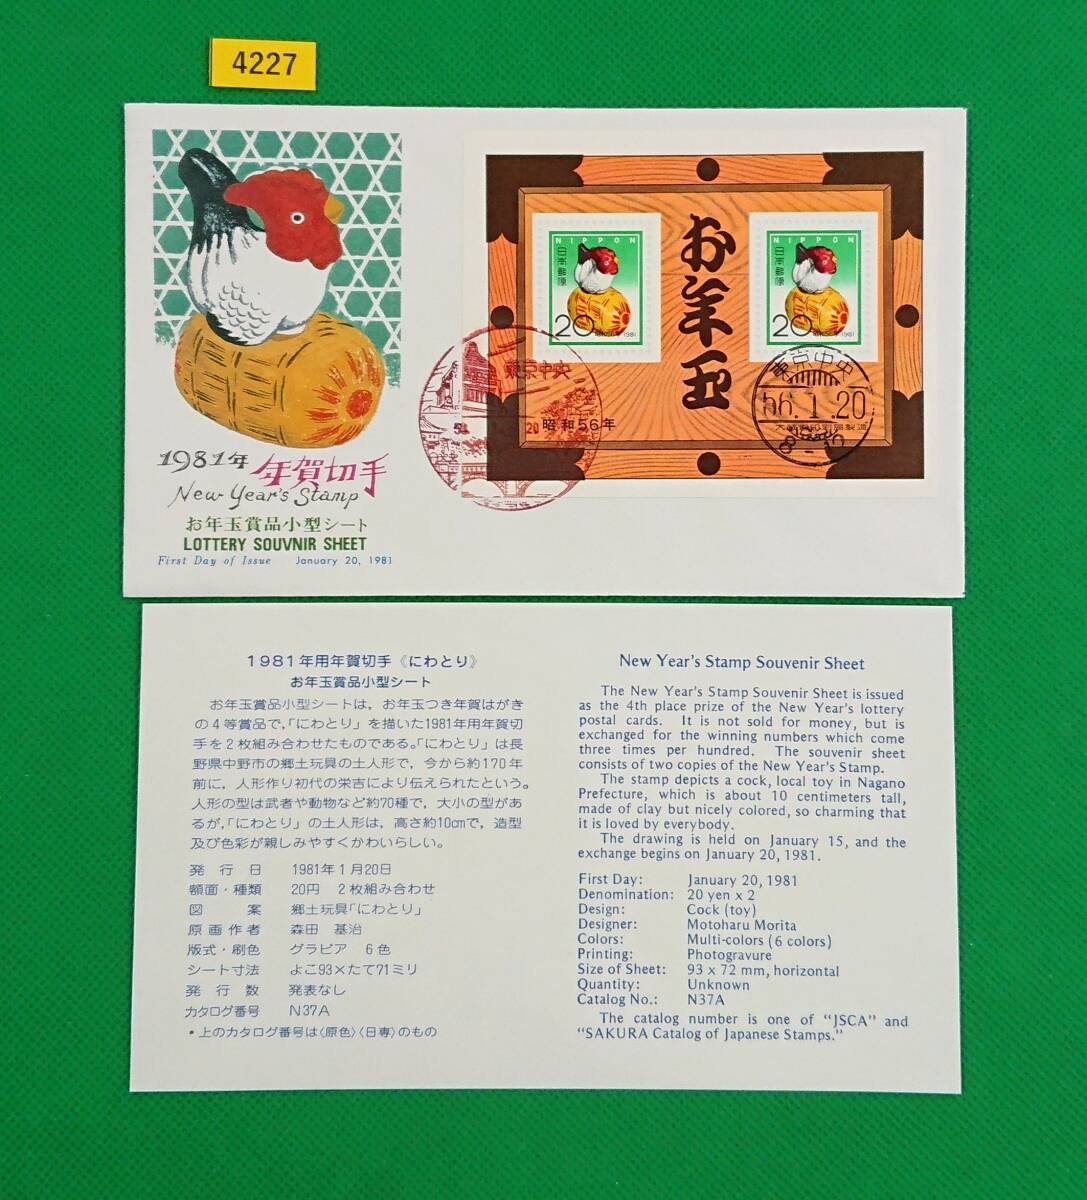 4227
NIPPON
日本郵便
20
1981
お年玉
NIPPON
日本郵便
20
1981
東京中央
20
昭和56年
東京中央
56.1.20
1981年 年賀切手
New Year's Stamp
お年玉賞品小型シート
LOTTERY SOUVNIR SHEET
First Day of Issue January 20, 1981
1981年用年賀切手《にわとり》
お年玉賞品小型シート
お年玉賞品小型シートは，お年玉つき年賀はがき
の4等賞品で，「にわとり」を描いた1981年用年賀切
手を2枚組み合わせたものである。「にわとり」は長
野県中野市の郷土玩具の土人形で，今から約170年
前に，人形作り初代の栄吉により伝えられたという。
人形の型は武者や動物など約70種で，大小の型があ
るが，「にわとり」の土人形は，高さ約10cmで，造型
及び色彩が親しみやすくかわいらしい。
発行日 1981年1月20日
額面・種類 20円 2枚組み合わせ
図案 郷土玩具「にわとり」
原画作者 森田 基治
版式・刷色 グラビア 6色
シート寸法 よこ93×たて71ミリ
発行数 発表なし
カタログ番号 N37A
・上のカタログ番号は〈原色〉〈日専〉のもの
New Year's Stamp Souvenir Sheet
The New Year's Stamp Souvenir Sheet is issued
as the 4th place prize of the New Year's lottery
postal cards. It is not sold for money, but is
exchanged for the winning numbers which come
three times per hundred. The souvenir sheet
consists of two copies of the New Year's Stamp.
The stamp depicts a cock, local toy in Nagano
Prefecture, which is about 10 centimeters tall,
made of clay but nicely colored, so charming that
it is loved by everybody.
The drawing is held on January 15, and the
exchange begins on January 20, 1981.
First Day: January 20, 1981
Denomination: 20 yen x 2
Design: Cock (toy)
Designer: Motoharu Morita
Colors: Multi-colors (6 colors)
Printing: Photogravure
Size of Sheet: 93 x 72 mm, horizontal
Quantity: Unknown
Catalog No.: N37A
The catalog number is one of "JSCA" and
"SAKURA Catalog of Japanese Stamps."